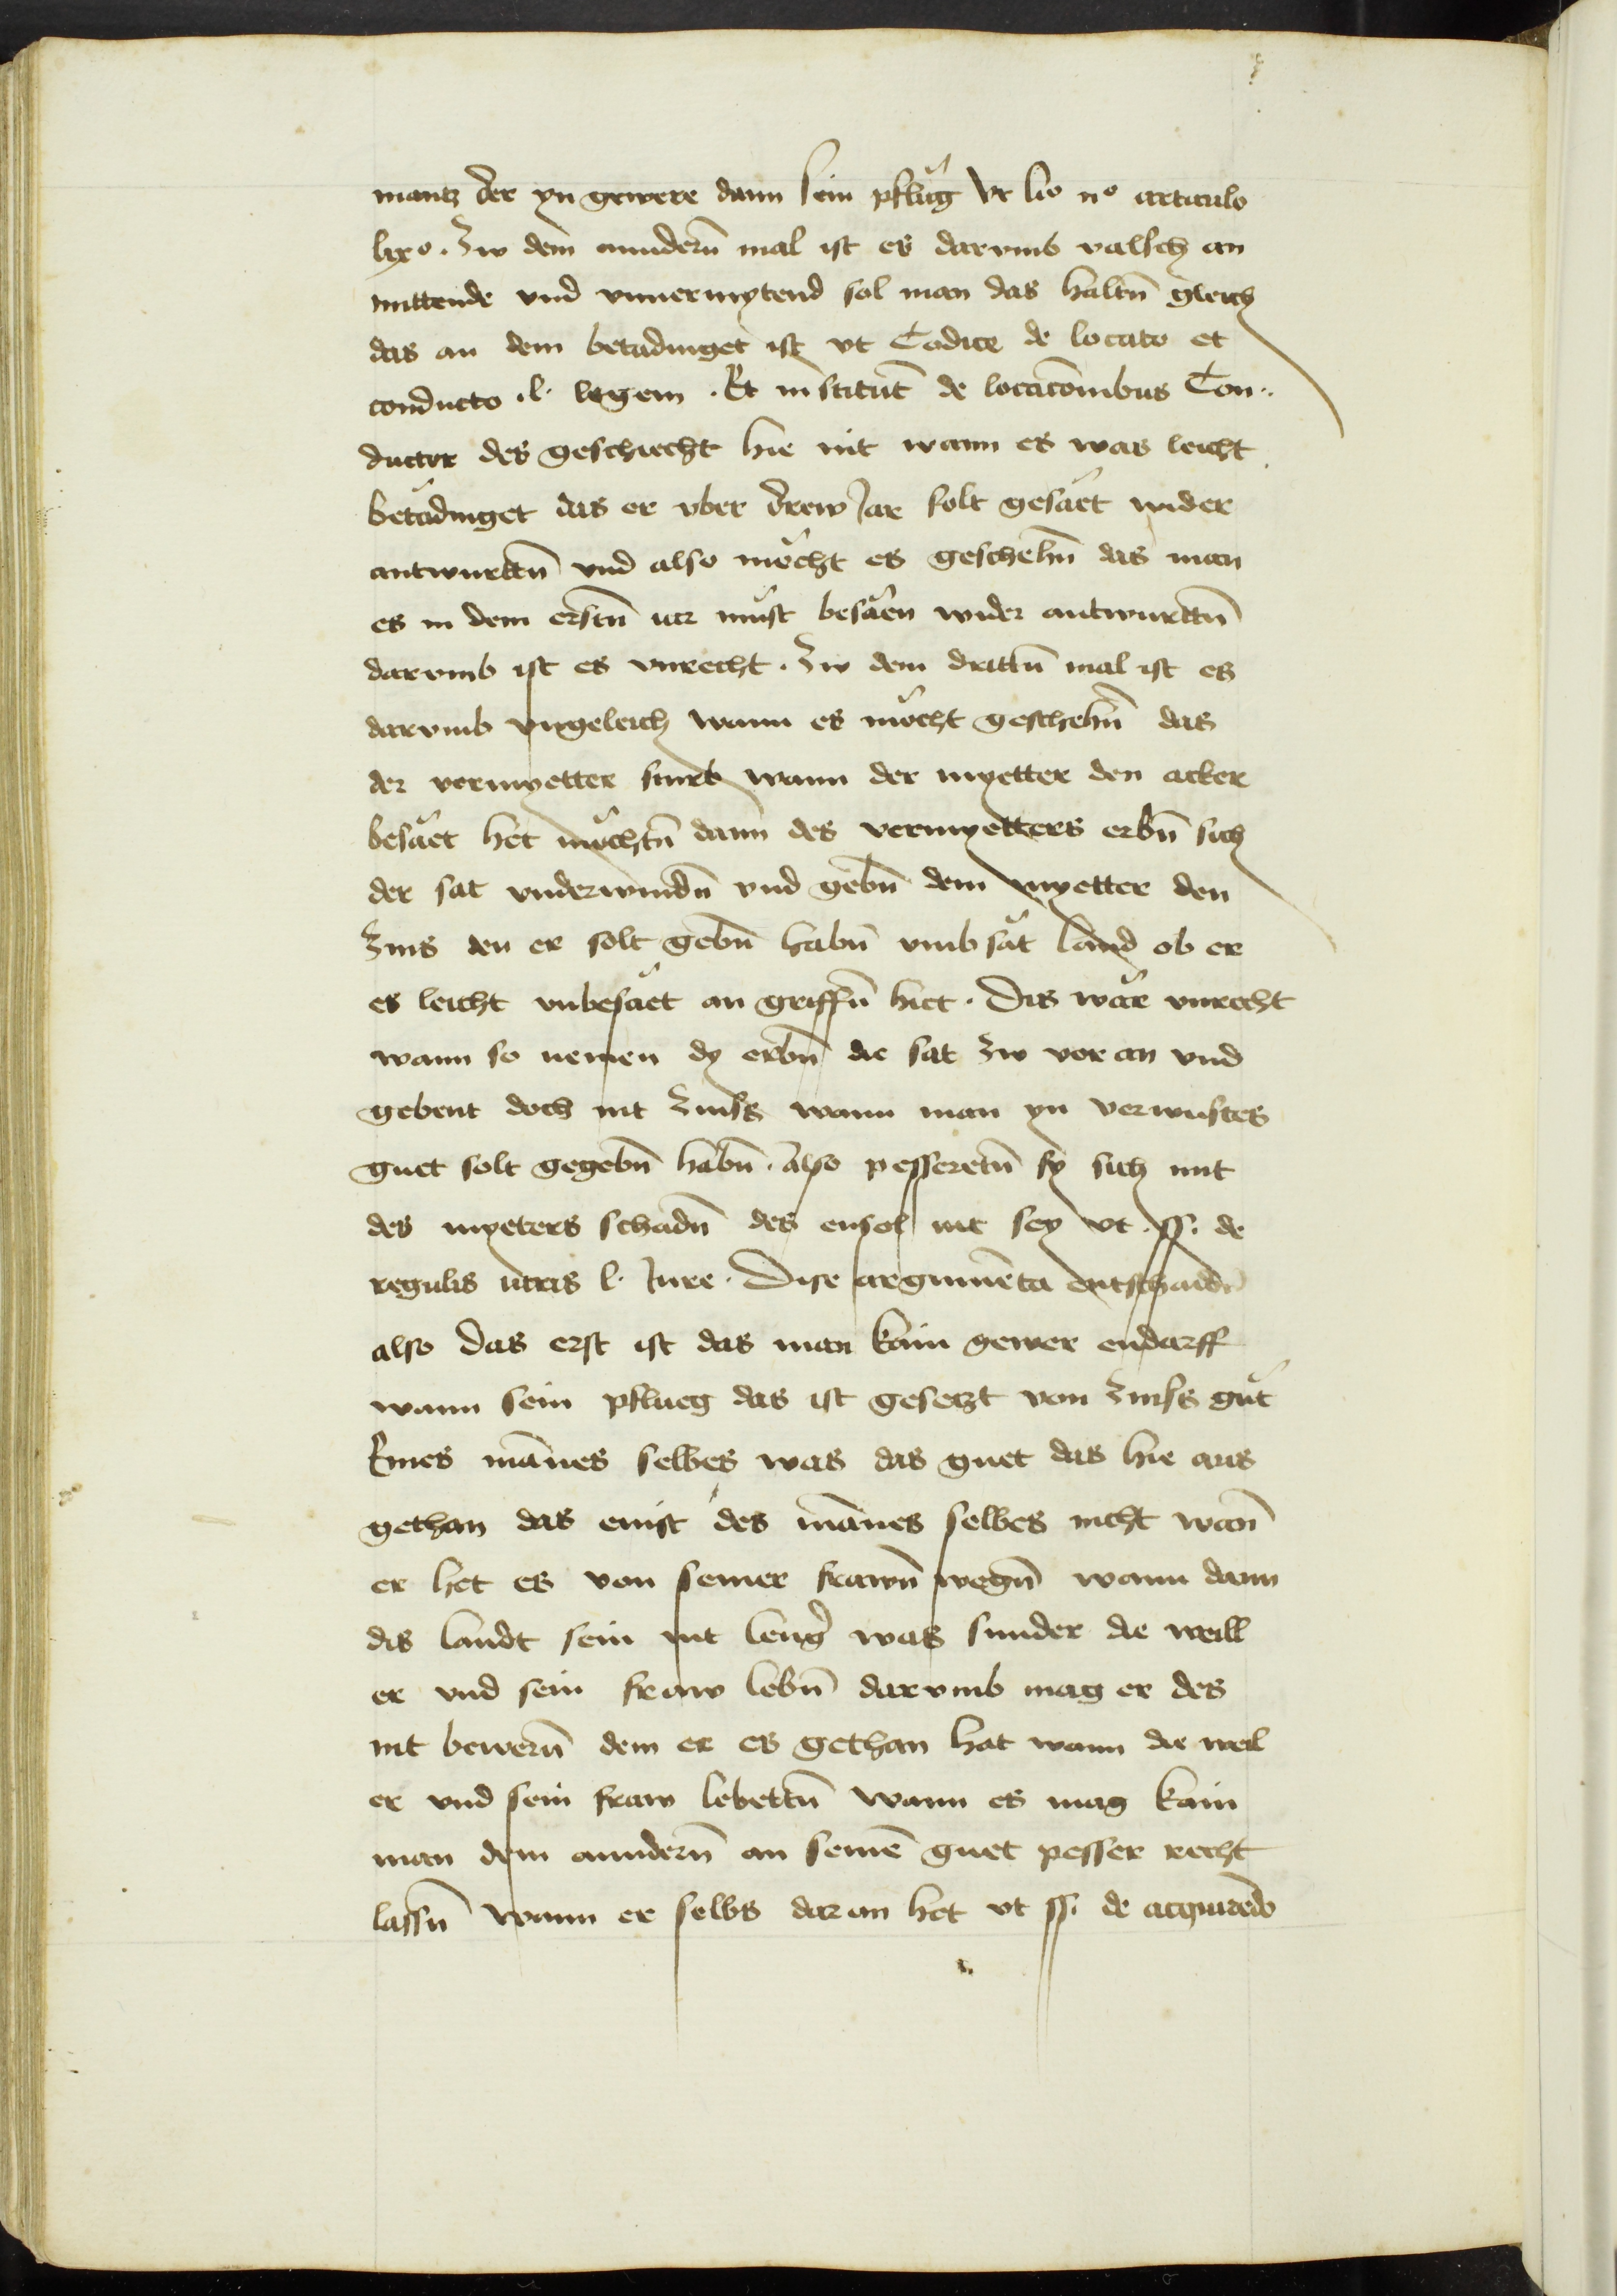 mantz der yn gewere dann sein pflůg Vt lio iio articulo
lixo. Zw dem anndern̄ mal ist es darvmb valsch an
mittende vnd vnuermytend sol man das haltn̄ gleich
das an dem betadinget ist vt Codice de locato et
conducto .l. legem . Et institut̄ de locaciōnibus Con..
ductor des geschiecht hie nit wann es was leicht
betadinget das er vber drew Jar solt gesaet wider
antwurttn̄ vnd also möcht es geschehn̄ das man
es in dem erstn̄ iar müst besäen wider antwurttn̄
darvmb ist es vnrecht . Zw dem drittn̄ mal ist es
darvmb vngeleich wann es möcht geschehn̄ das
der vermyetter sturb wann der myetter den acker
besäet het möchtn̄ dann des vermyetters erbn̄ sich
der sat vnderwindn̄ vnd gebn̄ dem myetter den
Zins den er solt gebn̄ habn̄ vmb sät land ob er
es leicht vnbesäet an griffn̄ hiet . Das wär vnrecht
wann so nemen dy erbn̄ die sat zw vor an vnd
gebent doch nit Zinss wann man yn verwustes
guet solt gegebn̄ habn̄ . also pesseretn̄ sy sich mit
des myeters schadn̄ des ensol nit sey vt . ff. de
regulis iuris l. Jure . Dise argumēta entschaidn̄
also Das erst ist das man kain gewer endarff
wann sein pflueg das ist gesetzt von Zinss gůt
Eines mānes selbes was das guet das hie aus
gethan das enist des mānes selbes nicht wan̄
er het es von seiner frawn̄ wegn̄ wann dann
dis landt sein nit leng̉ was sunder die weill
er vnd sein fraw lebn̄ darvmb mag er des
nit bewern̄ dem er es gethan hat wann die weil
er vnd sein fraw lebettn̄ wann es mag kain
man dem anndern̄ an seinē guet pesser recht
lassn̄ wann er selbs daran het vt ff. de acquirēdo